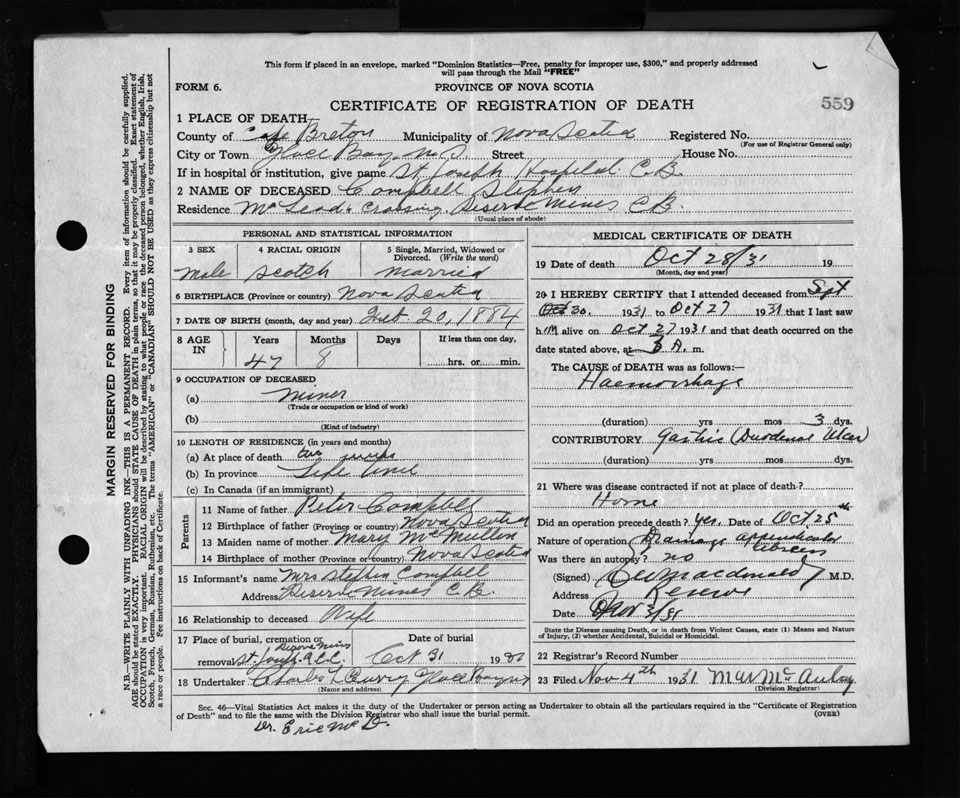 This form if placed in an envelope, marked "Dominion Statistics—Free, penalty for improper use, $300," and properly addressed
will pass through the Mail "FREE"
FORM 6.
PROVINCE OF NOVA SCOTIA
CERTIFICATE OF REGISTRATION OF DEATH
559
1 PLACE OF DEATH
County of Cape Breton Municipality of Nova Scotia Registered No.
(For use of Registrar General only)
City or Town Glace Bay N.S Street House No.
If in hospital or institution, give name St Joseph Hospital C.B.
2 NAME OF DECEASED Campbell Stephen
Residence McLeods Crossing Reserve Mines C B.
(Usual place of abode)
PERSONAL AND STATISTICAL INFORMATION
3 SEX 4 RACIAL ORIGIN 5 Single, Married, Widowed or
Divorced. (Write the word)
Male Scotch married
6 BIRTHPLACE (Province or country) Nova Scotia
7 DATE OF BIRTH (month, day and year) Feb 20, 1884
8 AGE IN Years Months Days If less than one day,
47 8 hrs. or min.
9 OCCUPATION OF DECEASED
(a) miner
(Trade or occupation or kind of work)
(b)
(Kind of industry)
10 LENGTH OF RESIDENCE (in years and months)
(a) At place of death two weeks
(b) In province Life time
(c) In Canada (if an immigrant)
Parents
11 Name of father Peter Campbell
12 Birthplace of father (Province or country) Nova Scotia
13 Maiden name of mother Mary McMullen
14 Birthplace of mother (Province or country) Nova Scotia
15 Informant's name Mrs Stephen Campbell
Address Reserve Mines C B.
16 Relationship to deceased Wife
17 Place of burial, cremation or Reserve Mines Date of burial
removal St. Joseph Oct 31 19
18 Undertaker Charles Curry Glace Bay
(Name and address)
MEDICAL CERTIFICATE OF DEATH
19 Date of death Oct 28/31 19
(Month, day and year)
20 I HEREBY CERTIFY that I attended deceased from Sept
Oct 20. 1931 to Oct 27 1931 that I last saw
him alive on Oct 27 1931 and that death occurred on the
date stated above, at 3 A. m.
The CAUSE of DEATH was as follows:—
Haemorrhage
(duration) yrs mos 3 dys.
CONTRIBUTORY Gastric (Duodenal Ulcer)
(duration) yrs mos dys.
21 Where was disease contracted if not at place of death?
Home
Did an operation precede death? yes. Date of Oct 25th
Nature of operation Drainage appendicular abscess
Was there an autopsy? no
(Signed) Macdonald M.D.
Address Reserve
Date Nov 3/31
State the Disease causing Death, or in death from Violent Causes, state (1) Means and Nature
of Injury, (2) whether Accidental, Suicidal or Homicidal.
22 Registrar's Record Number
23 Filed Nov 4th 1931 McAulay
(Division Registrar)
Sec. 46—Vital Statistics Act makes it the duty of the Undertaker or person acting as Undertaker to obtain all the particulars required in the "Certificate of Registration
of Death" and to file the same with the Division Registrar who shall issue the burial permit. (OVER)
Dr. Eric McD.
MARGIN RESERVED FOR BINDING
N.B.—WRITE PLAINLY WITH UNFADING INK—THIS IS A PERMANENT RECORD. Every item of information should be carefully supplied.
AGE should be stated EXACTLY. PHYSICIANS should STATE CAUSE OF DEATH in plain terms, so that it may be properly classified. Exact statement of
OCCUPATION is very important. RACIAL ORIGIN will be described by stating to what people or race the deceased person belonged, whether English, Irish,
Scotch, French, German, Russian, Ruthenian, etc. The terms "AMERICAN" or "CANADIAN" SHOULD NOT BE USED as they express citizenship but not
a race or people. Fee instructions on back of Certificate.